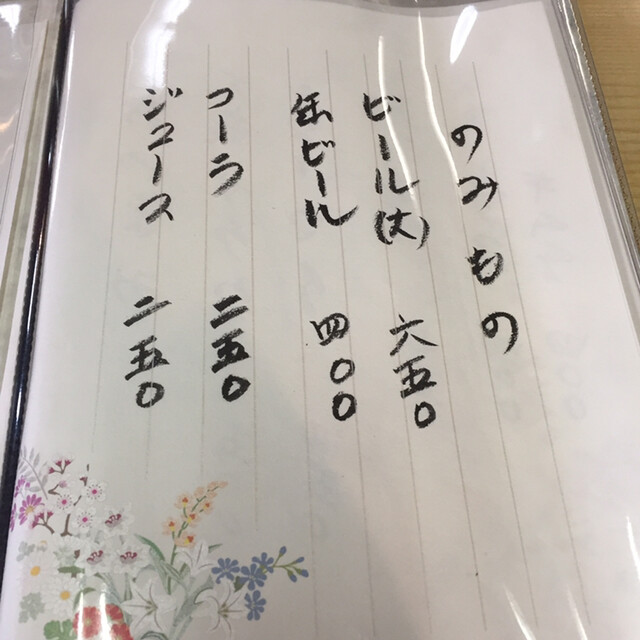 のみもの
ビール(大) 六五〇
缶ビール 四〇〇
コーラ 二五〇
ジュース 二五〇